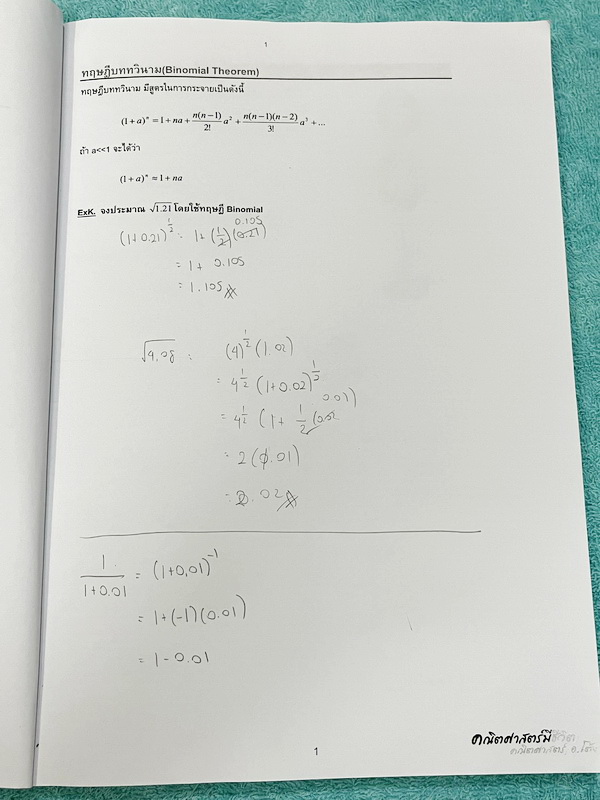 1
ทฤษฎีบททวินาม(Binomial Theorem)
ทฤษฎีบททวินาม มีสูตรในการกระจายเป็นดังนี้
(1+a)ⁿ = 1 + na + n(n−1)/2! a² + n(n−1)(n−2)/3! a³ + ...
ถ้า a<<1 จะได้ว่า
(1+a)ⁿ ≈ 1 + na
ExK. จงประมาณ √1.21 โดยใช้ทฤษฎี Binomial
0.105
(1+0.21)^(1/2) = 1 + (1/2)(0.21)
= 1 + 0.105
= 1.105
√4.08 = (4)^(1/2) (1.02)
= 4^(1/2) (1+0.02)^(1/2)
0.01)
= 4^(1/2) (1 + 1/2 (0.02
= 2(1.01)
= 2.02
1/(1+0.01) = (1+0.01)^(-1)
= 1+(-1)(0.01)
= 1 - 0.01
คณิตศาสตร์มีชีวิต
1